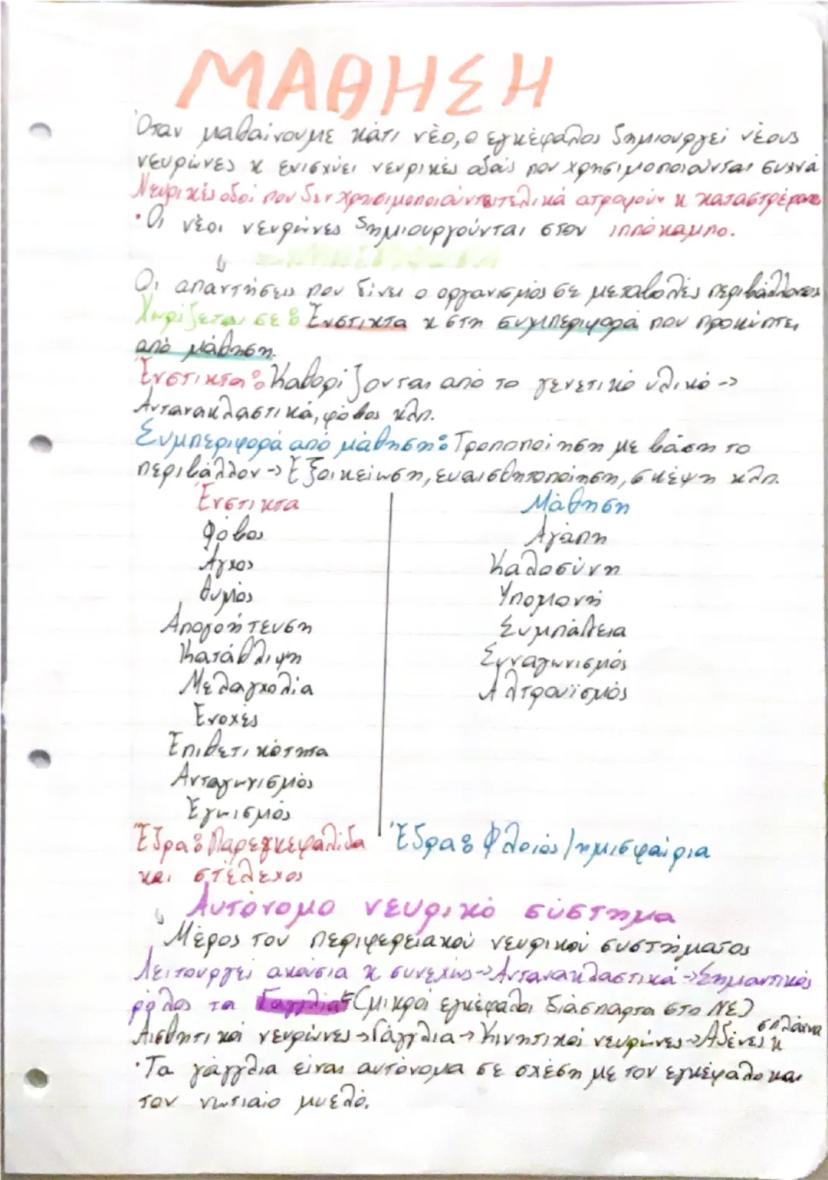 ΜΑΘΗΣΗ
Όταν μαθαίνουμε κάτι νέο, ο εγκέφαλος δημιουργεί νέους
νευρώνες κ ενισχύει νευρικές οδούς που χρησιμοποιούνται συχνά
Νευρικές οδοί που δεν χρησιμοποιούνται τελικά ατροφούν κ καταστρέφονται
• Οι νέοι νευρώνες δημιουργούνται στον ιππόκαμπο.
Οι απαντήσεις που δίνει ο οργανισμός σε μεταβολές περιβάλλοντος
Χωρίζεται σε: Ένστικτα κ στη συμπεριφορά που προκύπτει
από μάθηση.
Ένστικτα: Καθορίζονται από το γενετικό υλικό ->
Αντανακλαστικά, φόβος κλπ.
Συμπεριφορά από μάθηση: Τροποποίηση με βάση το
περιβάλλον -> Εξοικείωση, ευαισθητοποίηση, σκέψη κλπ.
Ένστικτα Μάθηση
Φόβος Αγάπη
Άγχος Καλοσύνη
θυμός Υπομονή
Απογοήτευση Συμπάθεια
Κατάθλιψη Συναγωνισμός
Μελαγχολία Αλτρουϊσμός
Ενοχές
Επιθετικότητα
Ανταγωνισμός
Εγωισμός
Έδρα: Παρεγκεφαλίδα Έδρα: Φλοιός/ημισφαίρια
και στέλεχος
Αυτόνομο νευρικό σύστημα
Μέρος του περιφερειακού νευρικού συστήματος
Λειτουργεί ακούσια κ συνεχώς -> Αντανακλαστικά -> Σημαντικός
ρόλος τα Γάγγλια (μικροί εγκέφαλοι διάσπαρτα στο ΝΣ)
Αισθητικοί νευρώνες -> Γάγγλια -> Κινητικοί νευρώνες -> Αδένες κ σπλάχνα
• Τα γάγγλια είναι αυτόνομα σε σχέση με τον εγκέφαλο και
τον νωτιαίο μυελό.